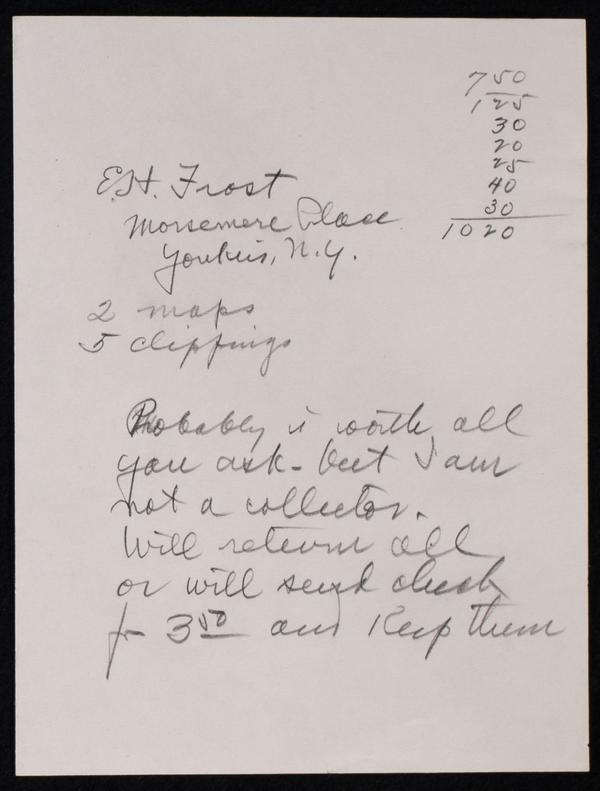 7 50
1 25
30
20
25
40
30
10 20
E.H. Frost
Morsemere Place
Yonkers, N.Y.
2 maps
5 clippings
Probably is worth all
you ask - but I am
not a collector.
Will return all
or will send check
for 3 50 and Keep them